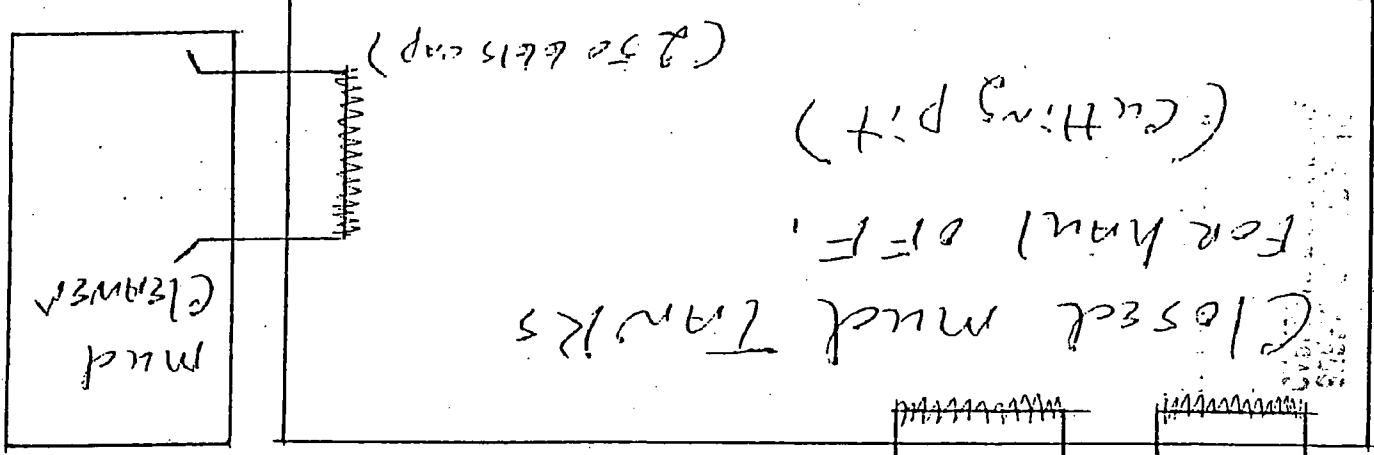 Closed mud TANKS
FOR haul OFF.
(Cutting pit)
(250 bbls cap)
mud
CLEANER